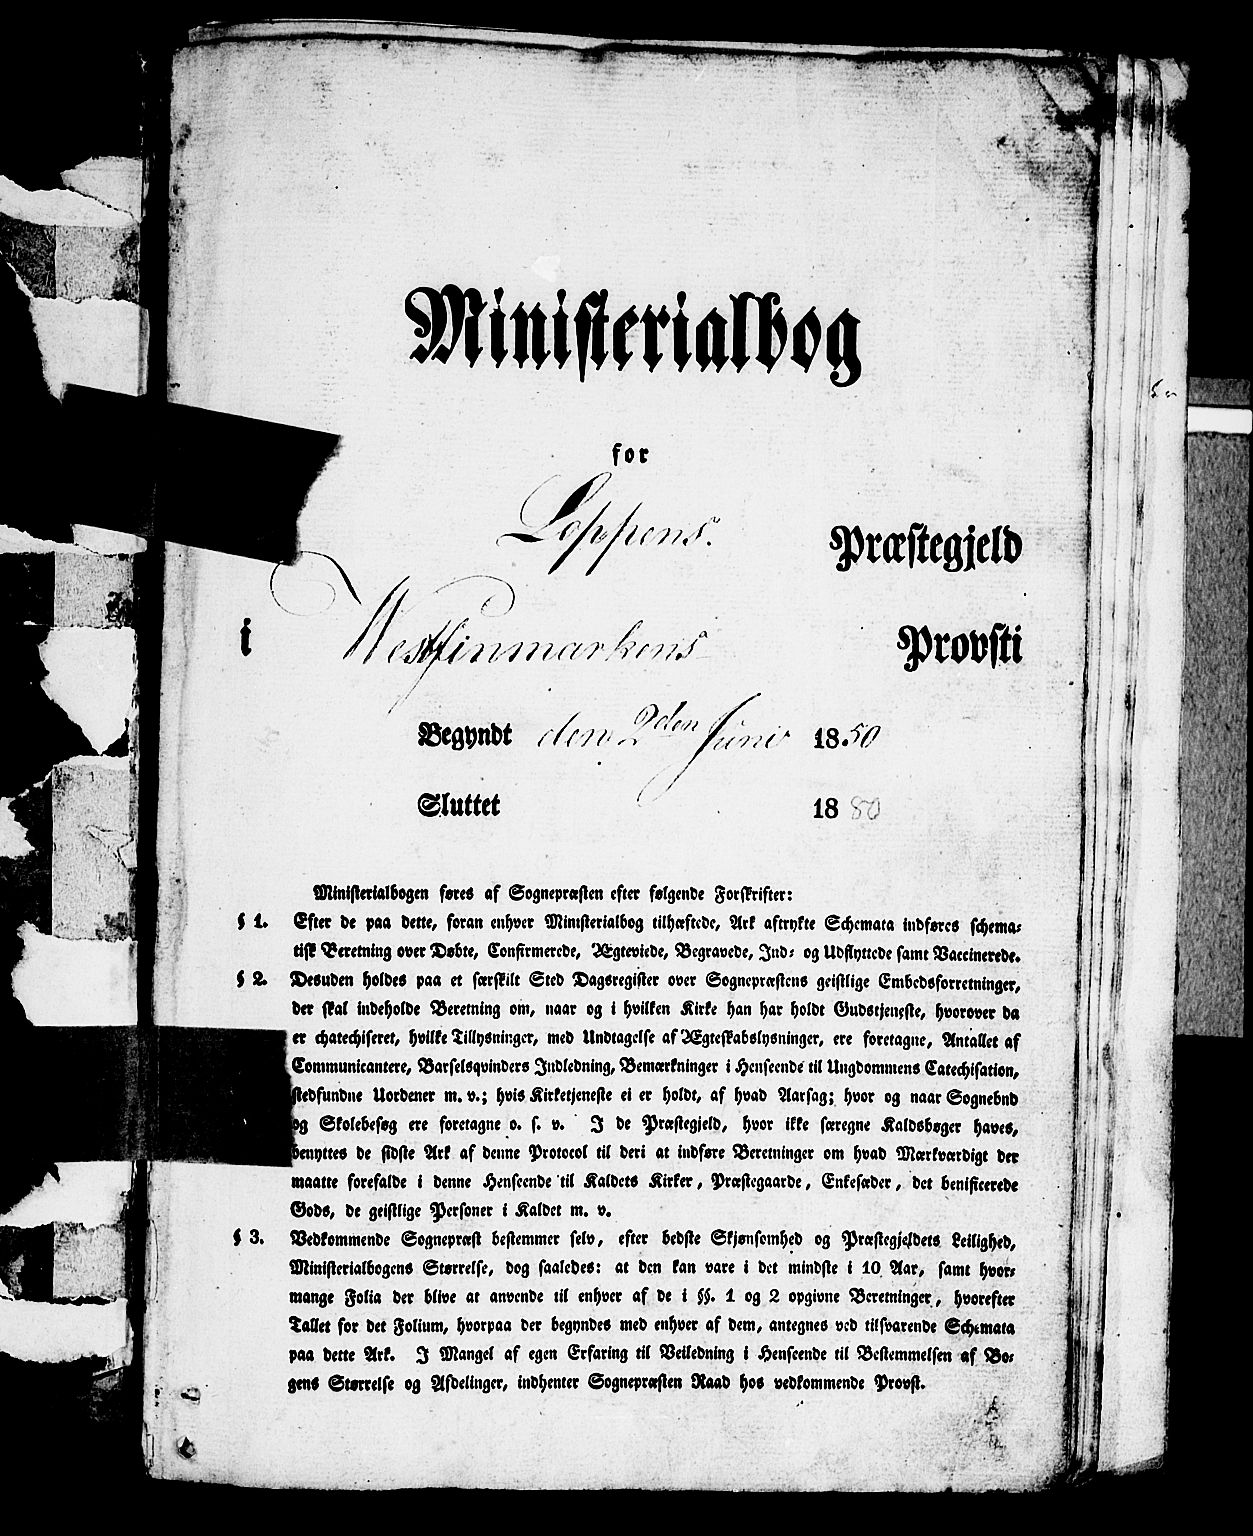 Ministerialbog
for
Loppens. Præstegjeld
i Westfinmarkens Provsti
Begyndt den 2den Juni 18.50
Sluttet 1880
Ministerialbogen føres af Sognepræsten efter følgende Forskrifter:
§ 1. Efter de paa dette, foran enhver Ministerialbog tilhæftede, Ark aftrykte Schemata indføres schema-
tisk Beretning over Døbte, Confirmerede, Ægteviede, Begravede, Ind- og Udflyttede samt Vaccinerede.
§ 2. Desuden holdes paa et særskilt Sted Dagsregister over Sognepræstens geistlige Embedsforretninger,
der skal indeholde Beretning om, naar og i hvilken Kirke han har holdt Gudstjeneste, hvorover da
er chatechiseret, hvilke Tillysninger, med Undtagelse af Ægteskabslysninger, ere foretagne, Antallet af
Communicantere, Barselsqvinders Indledning, Bemærkninger i Henseende til Ungdommens Catechisation,
stedfundne Uordener m. v.; hvis Kirketjeneste ei er holdt, af hvad Aarsag; hvor og naar Sognebud
og Skolebesøg ere foretagne o. s. v. I de Præstegjeld, hvor ikke særegne Kaldsbøger haves,
benyttes de sidste Ark af denne Protocol til deri at indføre Beretninger om hvad Mærkværdigt der
maatte forefalde i denne Henseende til Kaldets Kirker, Præstegaarde, Enkesæder, det benificerede
Gods, de geistlige Personer i Kaldet m. v.
§ 3. Vedkommende Sognepræst bestemmer selv, efter bedste Skjønsomhed og Præstegjeldets Leilighed,
Ministerialbogens Størrelse, dog saaledes: at den kan vare i det mindste i 10 Aar, samt hvor-
mange Folia der blive at anvende til enhver af de i §§. 1 og 2 opgivne Beretninger, hvorefter
Tallet for det Folium, hvorpaa der begyndes med enhver af dem, antegnes ved tilsvarende Schemata
paa dette Ark. I Mangel af egen Erfaring til Veiledning i Henseende til Bestemmelsen af Bo-
gens Størrelse og Afdelinger, indhenter Sognepræsten Raad hos vedkommende Provst.